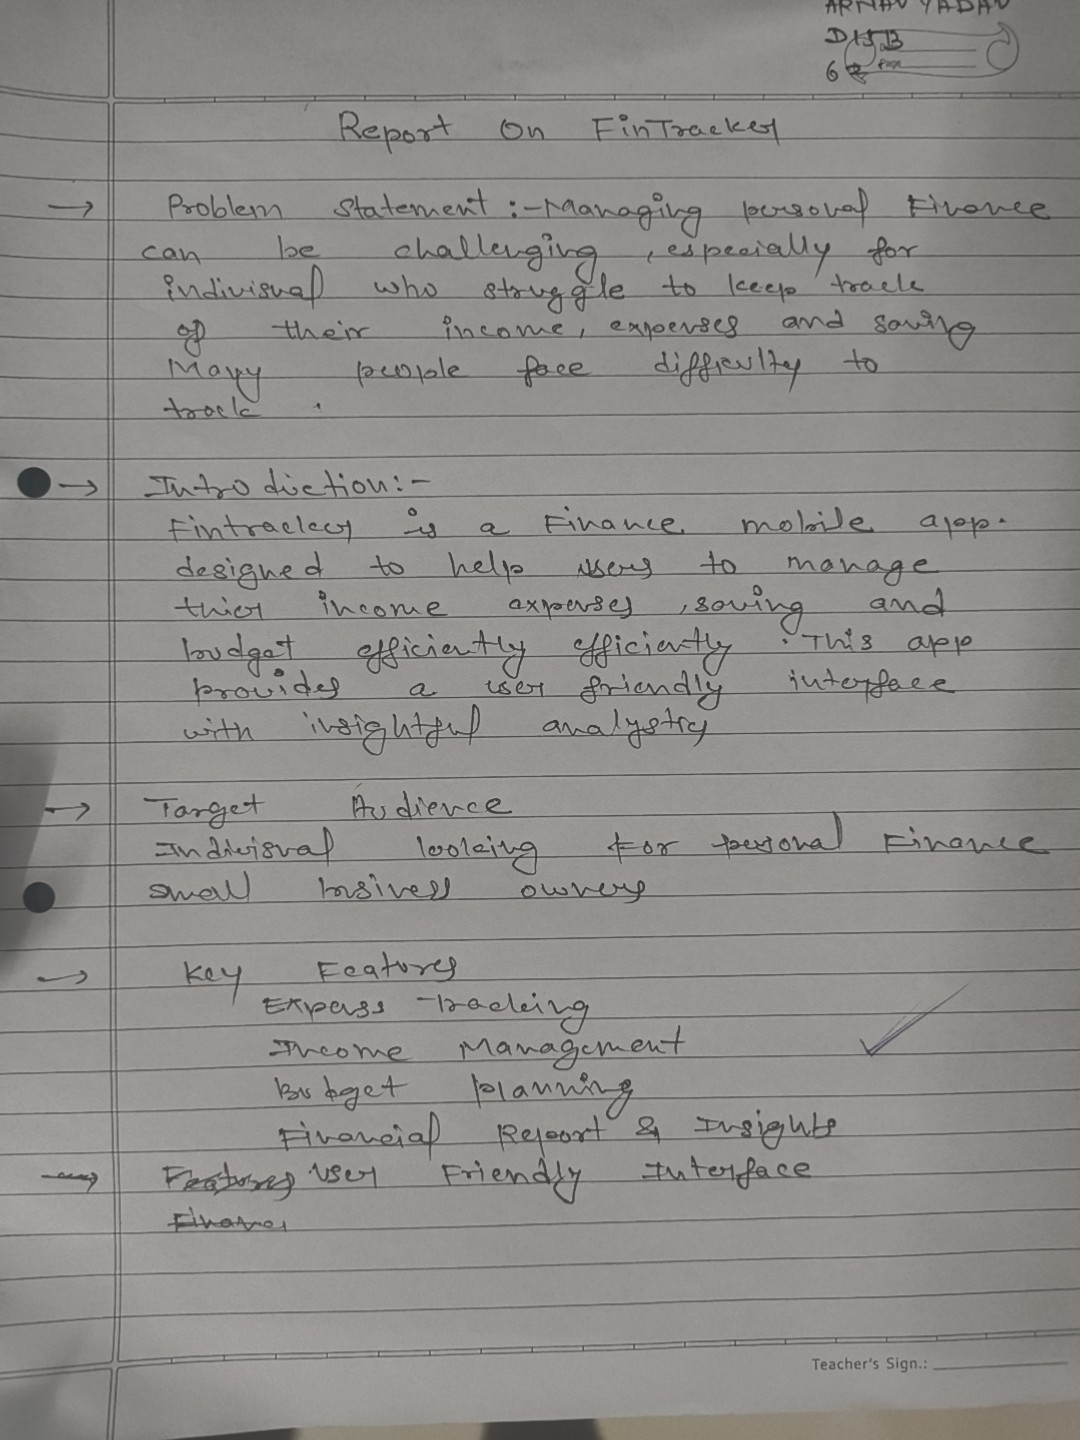 ARNAV YADAV
D15B
6
Report On FinTracker
→ Problem statement :- Managing personal Finance
can be challenging , especially for
indivisual who struggle to keep track
of their income, expenses and saving
Many people face difficulty to
track .
→ Introduction :-
Fintracker is a Finance mobile app.
designed to help users to manage
thier income expenses , saving and
budget efficiently efficiently . This app
provides a user friendly interface
with insightful analystics
→ Target Audience
Indivisual looking For personal Finance
small business owners
→ Key Features
Expenss Tracking
Income Management
Budget planning
Financial Report & Insights
→ Features User Friendly Interface
Finance
Teacher's Sign.: